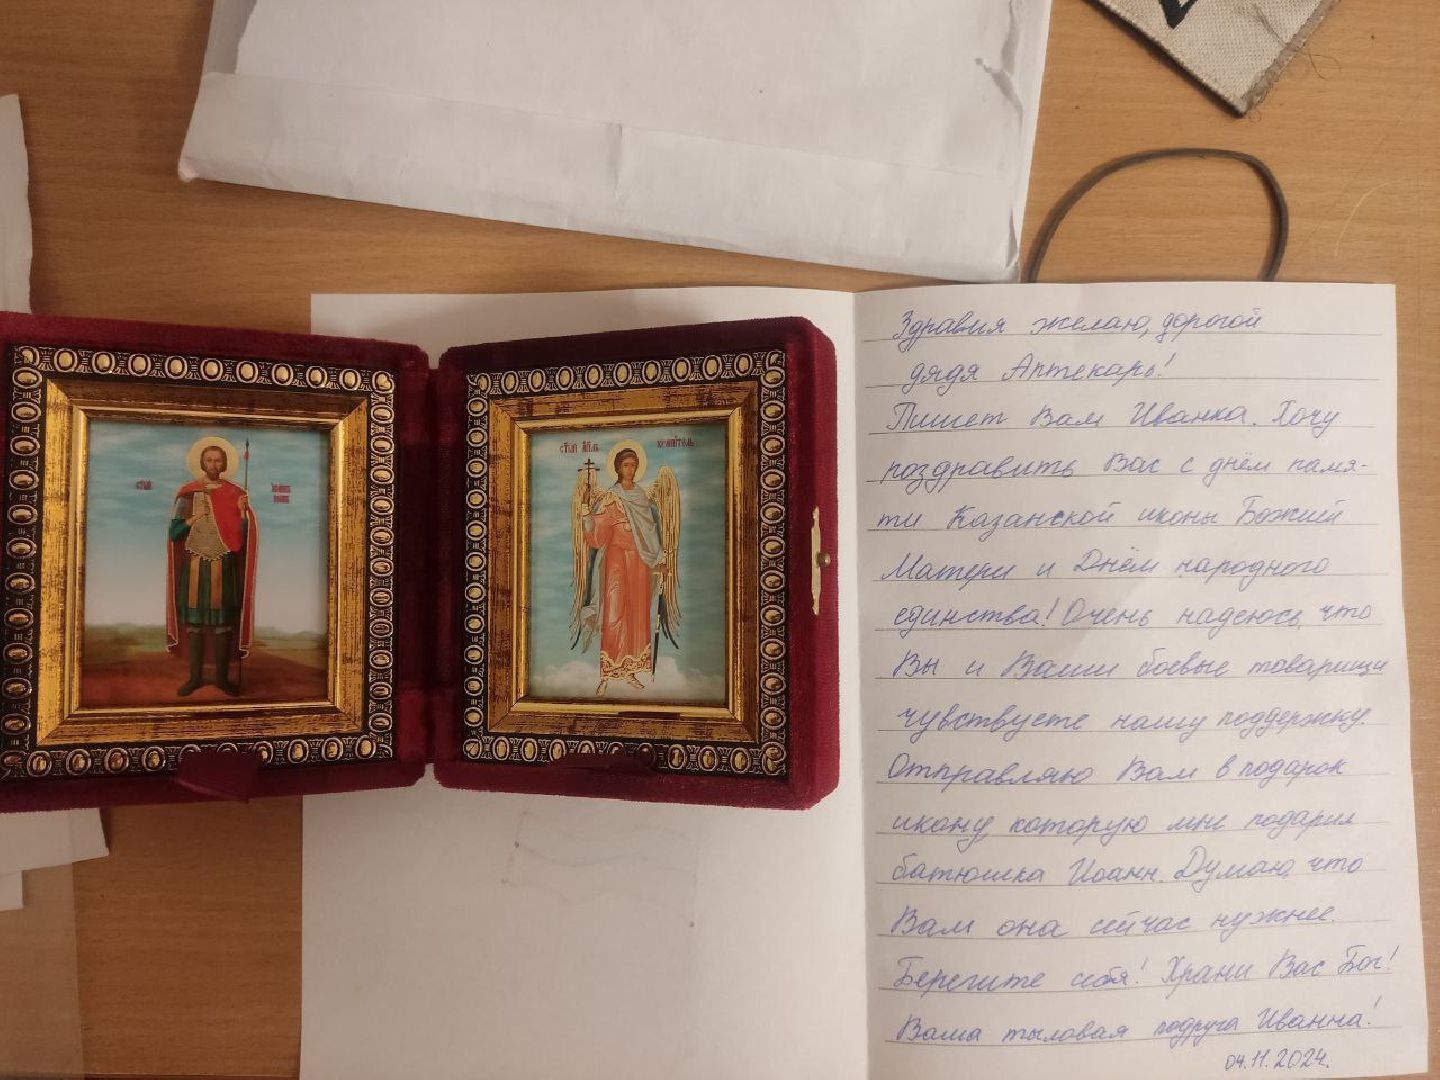 Здравия желаю, дорогой
дядя Аптекарь!
Пишет Вам Иванка. Хочу
поздравить Вас с днём памя-
ти Казанской иконы Божией
Матери и Днём народного
единства! Очень надеюсь, что
Вы и Ваши боевые товарищи
чувствуете нашу поддержку.
Отправляю Вам в подарок
икону, которую мне подарил
батюшка Иоанн. Думаю, что
Вам она сейчас нужнее.
Берегите себя! Храни Вас Бог!
Ваша тыловая подруга Иванна!
04.11.2024.